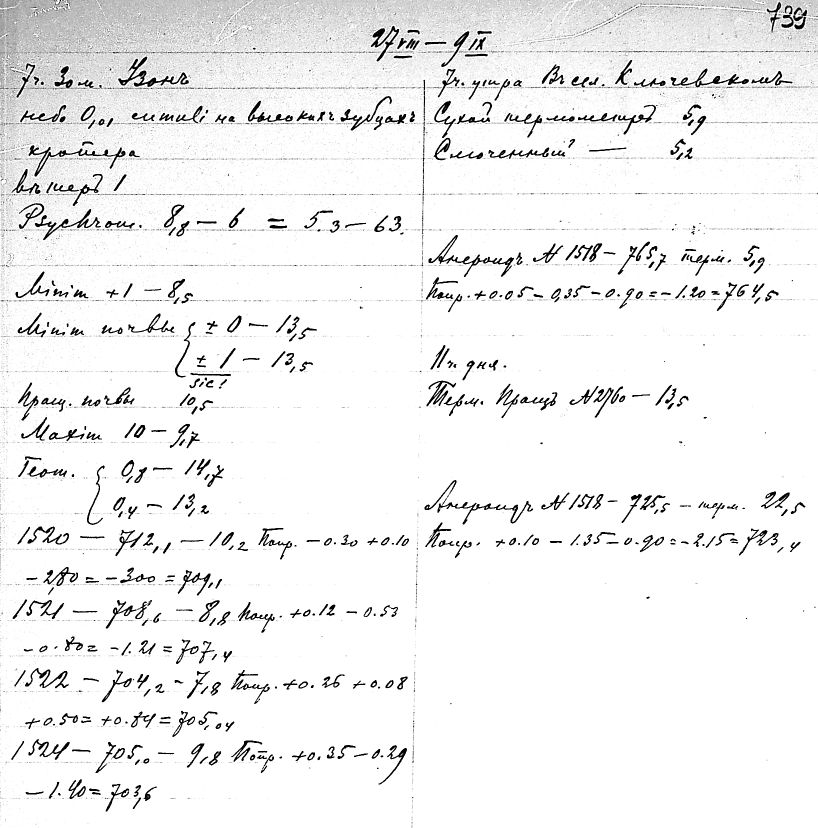 739
27 VIII — 9 IX
7 ч. 30 м. Узонъ
небо 0,01 cumuli на высокихъ зубцахъ
кратера
вѣтеръ 1
Psychrom. 8,8 — 6 = 5.3 — 63.
Minim +1 — 8,5
Minim почвы ± 0 — 13,5
± 1 — 13,5
sic!
Пращ. почвы 10,5
Maxim 10 — 9,7
Геот. 0,8 — 14,7
0,4 — 13,2
1520 — 712,1 — 10,2 Попр. — 0.30 + 0.10
— 2,80 = — 300 = 709,1
1521 — 708,6 — 8,8 Попр. + 0.12 — 0.53
— 0.80 = — 1.21 = 707,4
1522 — 704,2 — 7,8 Попр. + 0.26 + 0.08
+ 0.50 = + 0.84 = 705,04
1524 — 705,0 — 9,8 Попр. + 0.35 — 0.29
— 1.40 = 703,6
7 ч. утра Въ сел. Ключевскомъ
Сухой термометръ 5,9
Смоченный — 5,2
Анероидъ № 1518 — 765,7 терм. 5,9
Попр. + 0.05 — 0,35 — 0.90 = — 1.20 = 764,5
11 ч. дня.
Терм. Пращъ № 2760 — 13,5
Анероидъ № 1518 — 725,5 — терм. 22,5
Попр. + 0.10 — 1.35 — 0.90 = — 2.15 = 723,4